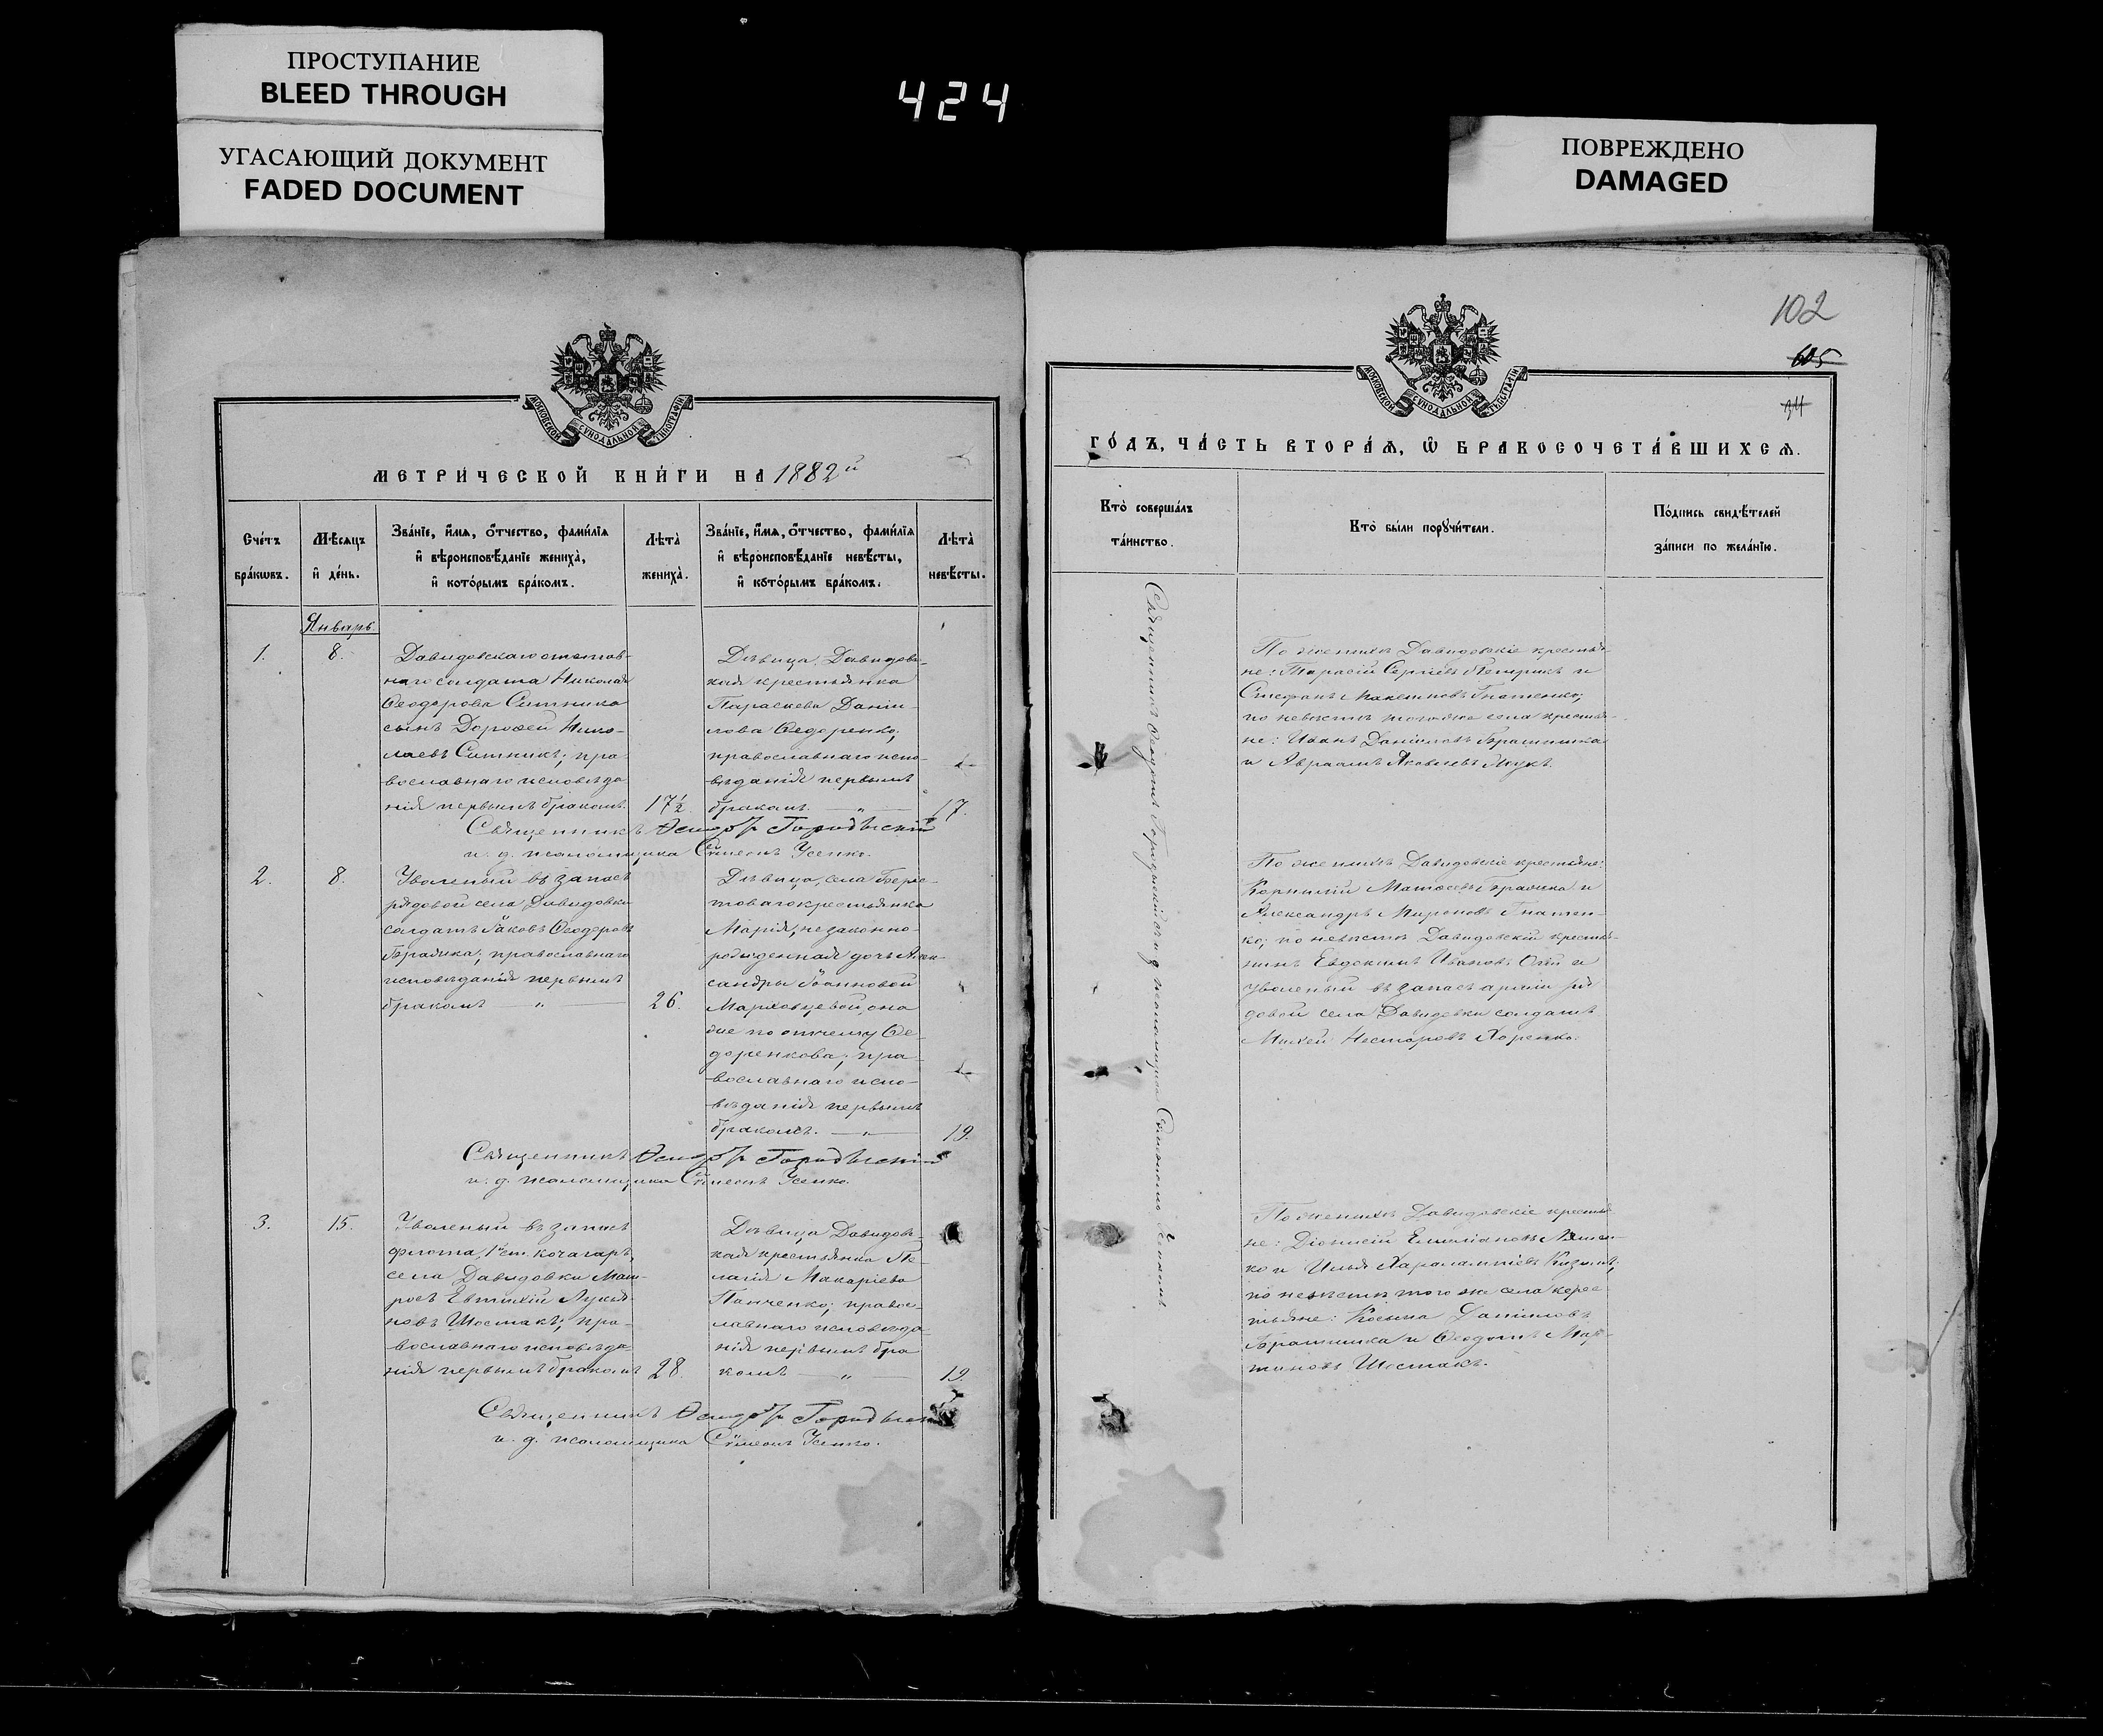 ПРОСТУПАНИЕ
BLEED THROUGH
УГАСАЮЩИЙ ДОКУМЕНТ
FADED DOCUMENT
424
ПОВРЕЖДЕНО
DAMAGED
МОСКОВСКОЙ СѴНОДАЛЬНОЙ ТИПОГРАФІИ
МЕТРИ́ЧЕСКОЙ КНИ́ГИ НА 1882й
Сче́тъ бра́кѡвъ.
Мѣ́сяцъ и҆ де́нь.
Зва́нїе, и҆́мѧ, ѻ҆́тчество, фами́лїѧ и҆ вѣроисповѣ́данїе жениха̀, и҆ кото́рымъ бра́комъ.
Лѣ́та̀ жениха̀.
Зва́нїе, и҆́мѧ, ѻ҆́тчество, фами́лїѧ и҆ вѣроисповѣ́данїе невѣ́сты, и҆ кото́рымъ бра́комъ.
Лѣ́та̀ невѣ́сты.
Январь.
1.
8.
Давидовскаго отстав-
наго солдата Николая
Ѳеодорова Ситника
сынъ Дороѳей Нико-
лаевъ Ситникъ; пра-
вославнаго исповѣда
нія первымъ бракомъ.
17½
Дѣвица, Давидовс-
кая крестьянка
Параскева Даніи-
лова Ѳедоренко;
православнаго испо-
вѣданія первымъ
бракомъ. — „ —
17.
Священникъ Ѳеодоръ Городыскій
и. д. псаломщика Сѵмеонъ Усенко.
2.
8.
Уволеный въ запасъ
рядовой села Давидовки
солдатъ Іаковъ Ѳеодоровъ
православнаго
исповѣданія первымъ
бракомъ „ —
26.
Дѣвица, села Берес-
товаго крестьянка
Марія, незаконно-
рожденная дочь Алек-
сандры Іоанновой
она
же по отчему Ѳе-
доренкова; пра-
вославнаго испо-
вѣданія первымъ
бракомъ. — „ —
19.
Священникъ Ѳеодоръ Городыскій
и. д. псаломщика Сѵмеонъ Усенко.
3.
15.
Уволеный въ запасъ
флота, 1й ст. кочагаръ,
села Давидовки Мат-
росъ Евтихій Лукья-
новъ Шостакъ; пра-
вославнаго исповѣда-
нія первымъ бракомъ
28.
Дѣвица Давидовс-
кая крестьянка Пе-
лагія Макаріева
Панченко; правос-
лавнаго исповѣда-
нія первымъ бра
комъ — „ —
19.
Священникъ Ѳеодоръ Городыскій
и. д. псаломщика Сѵмеонъ Усенко.
102
605
34
МОСКОВСКОЙ СѴНОДАЛЬНОЙ ТИПОГРАФІИ
ГО́ДЪ, ЧА́СТЬ ВТОРА́Ѧ, Ѽ БРАКОСОЧЕТА́ВШИХСѦ.
Кто̀ соверша́лъ та́инство.
Кто̀ бы́ли порꙋчи́тели.
По́дпись свидѣ́телей за́писи по жела́нїю.
Священникъ Ѳеодоръ Городыскій съ и. д. псаломщика Сѵмеономъ Усенкомъ
По женихѣ Давидовскіе крестья-
не: Тарасій Сергіевъ и
Стефанъ Гнатенко;
по невѣстѣ того же села крестья-
не: Иванъ Даніиловъ Браташка
и Авраамъ Яковлевъ
По женихѣ Давидовскіе крестьяне:
Корнилій и
Александръ Мироновъ Гнатен-
ко; по невѣстѣ Давидовскій крестья-
нинъ Евдокимъ Ивановъ и
уволеный въ запасъ арміи ря
довой села Давидовки солдатъ
Михей Несторовъ Хоренко.
По женихѣ Давидовскіе крестья-
не: Діонисій Емиліановъ
ко и Илья Харалампіевъ
по невѣстѣ того же села крес-
тьяне: Косьма Даніиловъ
Браташка и Ѳеодотъ Мар-
тиновъ Шостакъ.